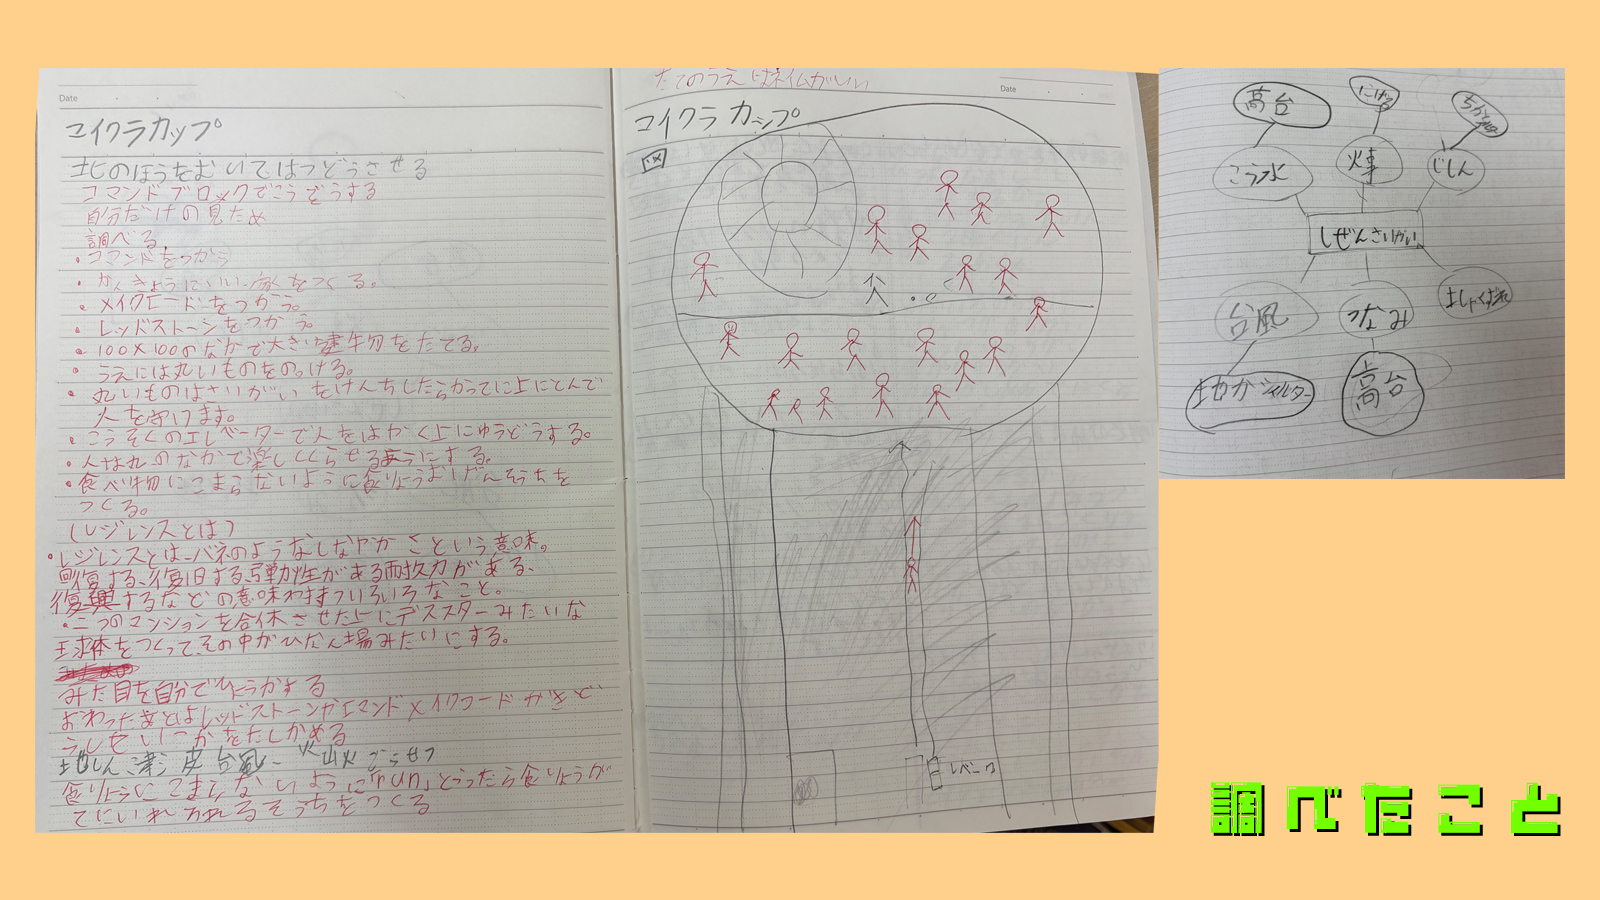 Date
マイクラカップ
北のほうをむいてはつどうさせる
コマンドブロックでこうどうする
自分だけの見ため
調べる
・コマンドをつかう
・かんきょうにいい家をつくる。
・メイクコードをつかう。
・レッドストーンをつかう。
・100×100のなかで大きい建物をたてる。
・うえには丸いものをのっける。
・丸いものはさいがいをけんちしたらかってに上にとんで
人を守ります。
・こうそくのエレベーターで人をはやく上にゆうどうする。
・人は丸のなかで楽しくくらせるようにする。
・食べ物にこまらないように食りょう
つくる。
(レジレンスとは)
・レジレンスとはバネのようなしなやかさという意味。
回復する、復旧する、弾力性がある耐久力がある、
復興するなどの意味わ持ついろいろなこと。
・二つのマンションを合体させた上にデススターみたいな
球体をつくって、その中がひなん場みたいにする。
みた目を自分でひょうかする
おわったあとはレッドストーンかコマンドメイクコードがきど
うしているかをたしかめる
地しん 津波 台風 火山火
食りょうにこまらないように「run」とうったら食りょうが
てにいれられるそうちをつくる
たてのうえはネイムがいい
Date
マイクラカップ
図
高台
にげる
こう水
火事
じしん
しぜんさいがい
台風
つなみ
土しゃくずれ
地かシェルター
高台
調べたこと